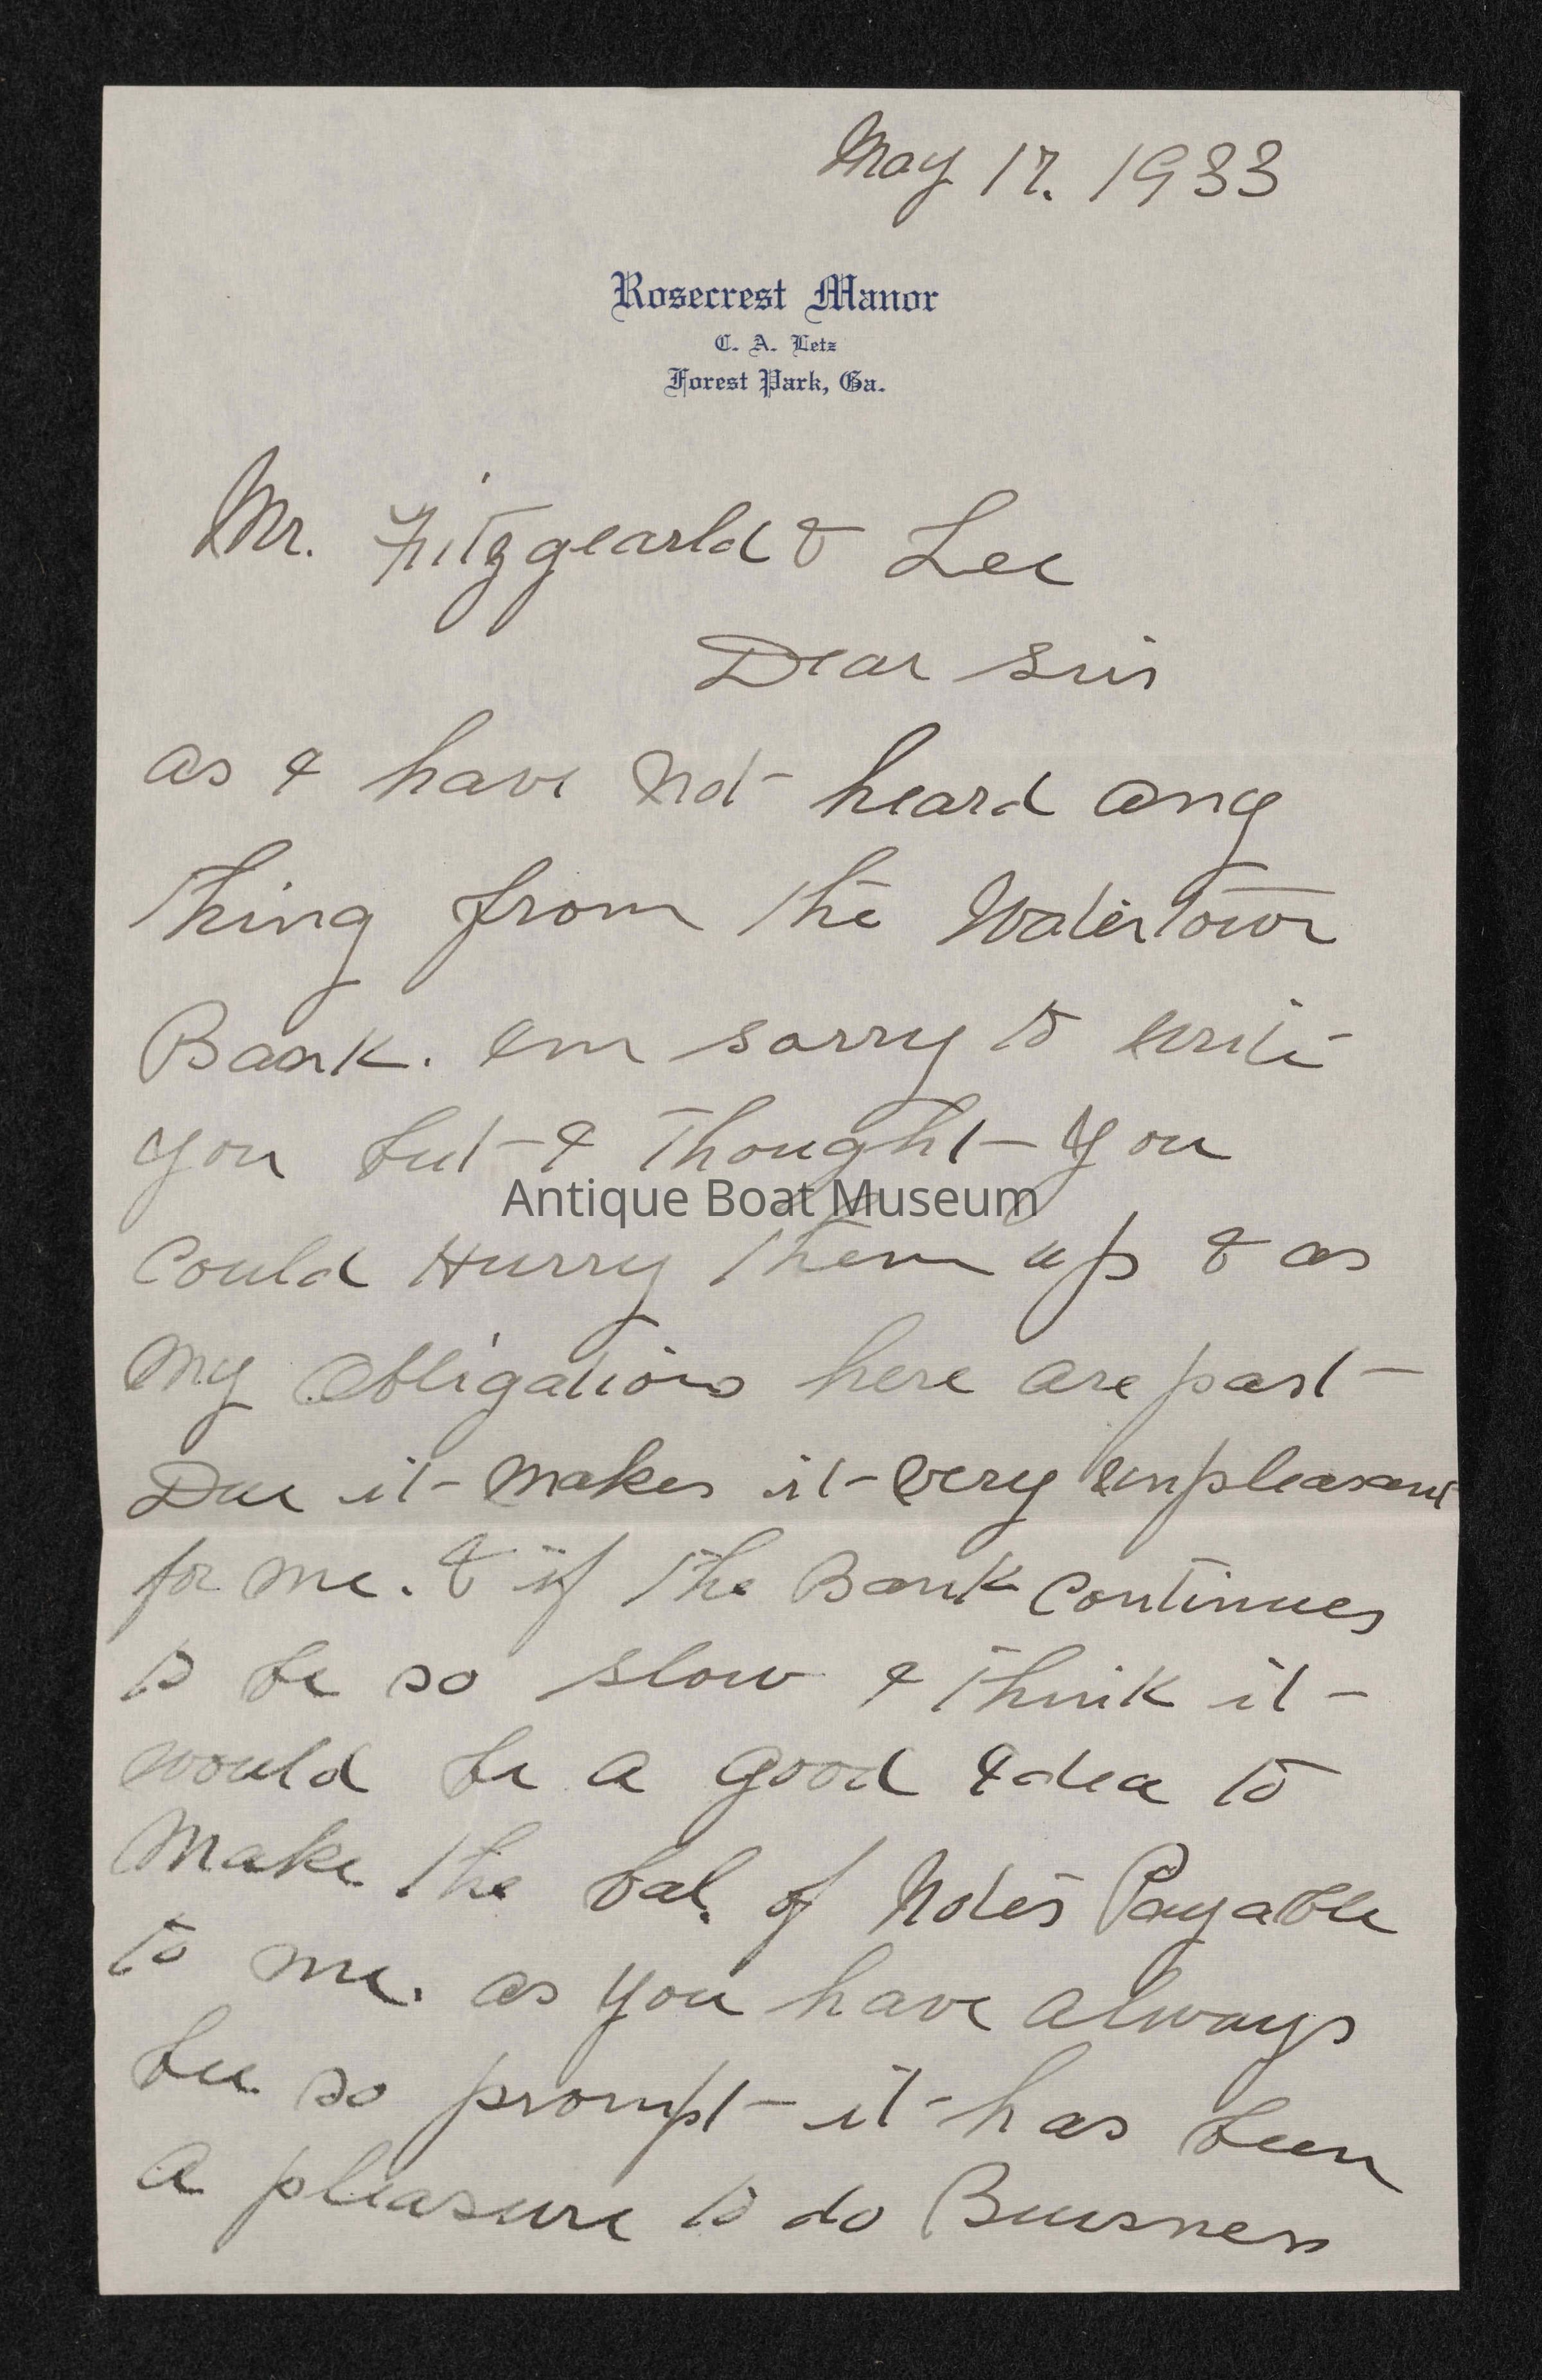 May 17. 1933
Rosecrest Manor
C. A. Letz
Forest Park, Ga.
Mr. Fitzgearld & Lee
Dear Sirs
as I have Not heard any
thing from the Watertown
Bank. Am sorry to write
you but I thought you
Antique Boat Museum
Could Hurry them up & as
My Obligations here are past
Due it makes it very unpleasant
for me. & if the Bank Continues
to be so slow I think it
would be a good Idea to
Make the bal. of Notes Payable
to me. as you have always
bee so prompt it has been
a pleasure to do Buisness